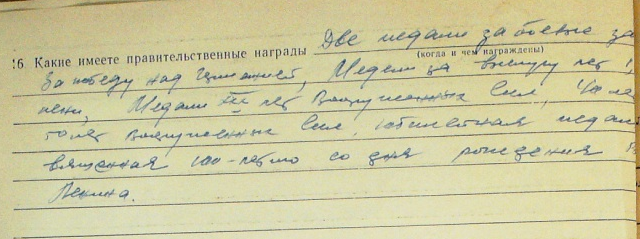 16 Какие имеете правительственные награды Две медали за боевые за
(когда и чем награждены)
За победу над Германией, Медали за выслугу лет 1
пени, Медали лет Вооруженных Сил, 40 ле
лет Вооруженных Сил, юбилейная медал
вященная 100-летию со дня рождения
Ленина.